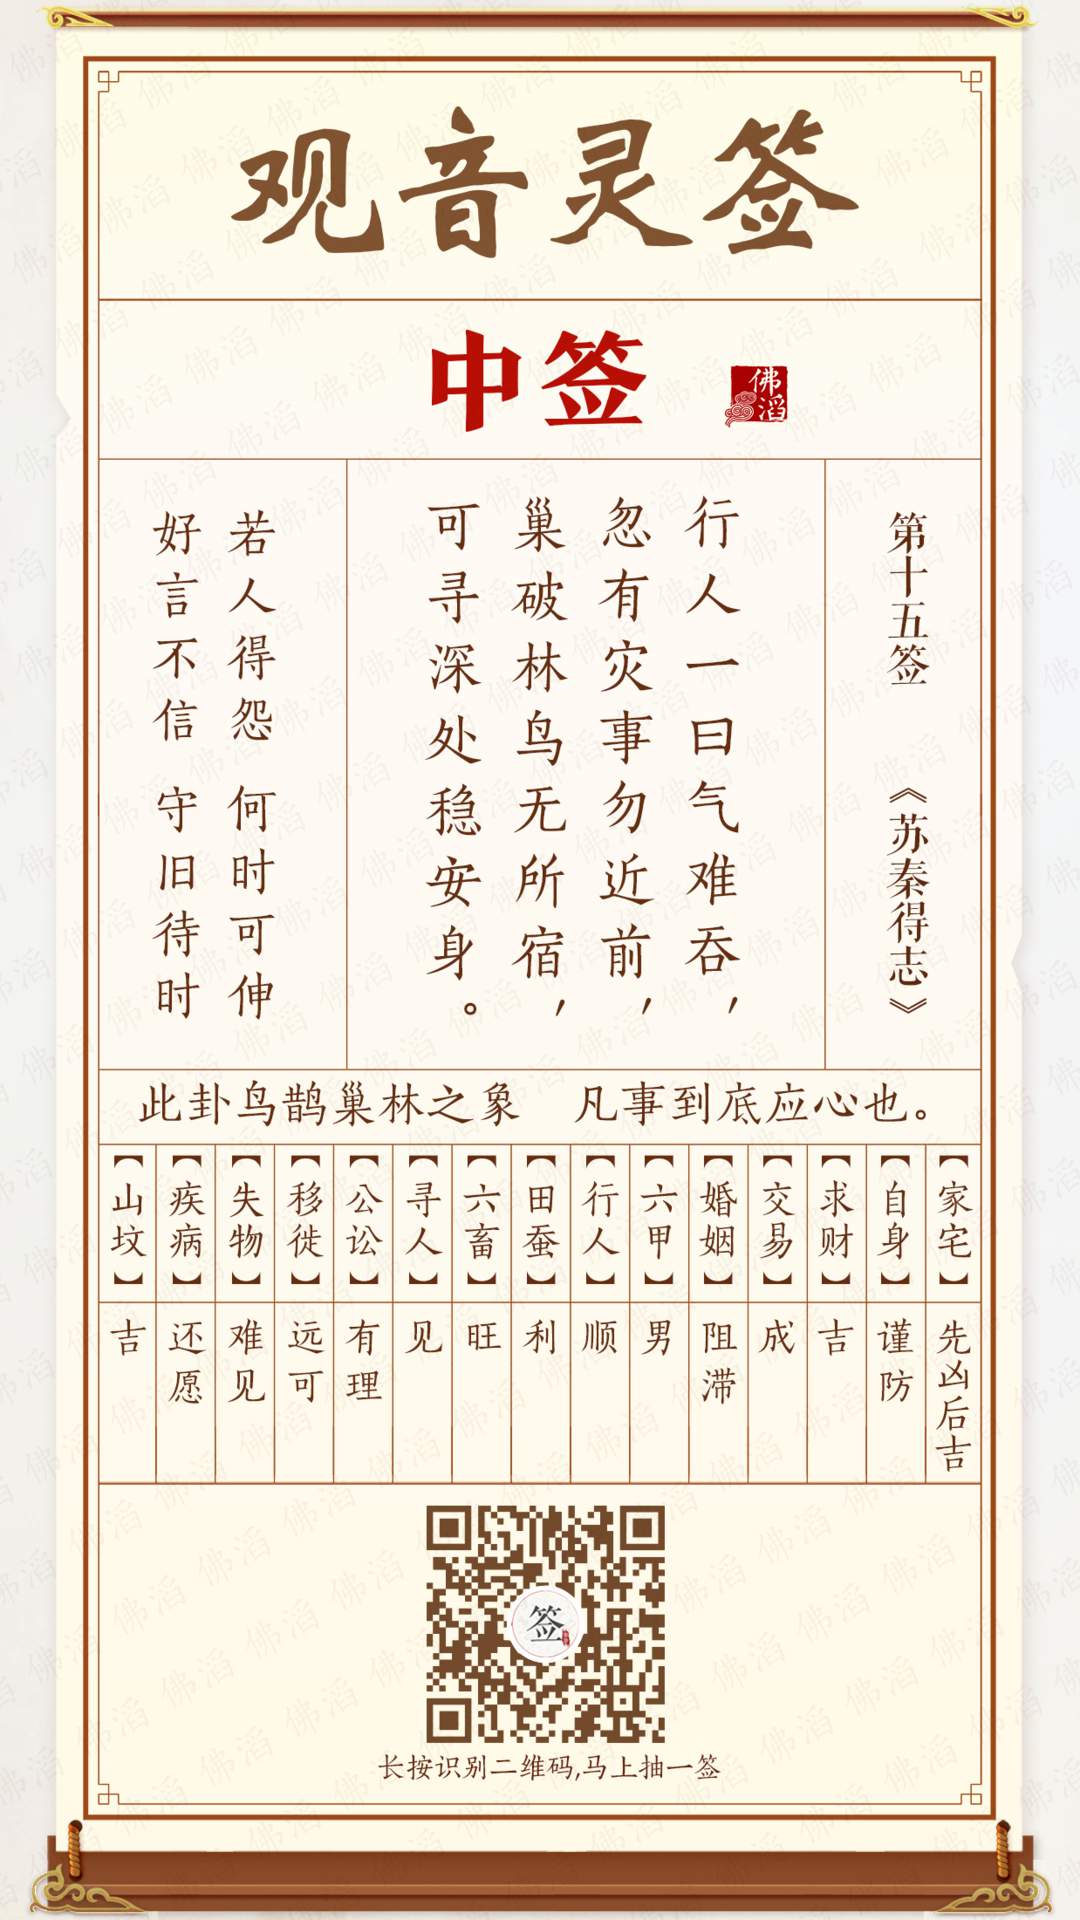 观音灵签
中签
佛滔
第十五签 《苏秦得志》
行人一曰气难吞，
忽有灾事勿近前，
巢破林鸟无所宿，
可寻深处稳安身。
若人得怨 何时可伸
好言不信 守旧待时
此卦鸟鹊巢林之象 凡事到底应心也。
【家宅】先凶后吉
【自身】谨防
【求财】吉
【交易】成
【婚姻】阻滞
【六甲】男
【行人】顺
【田蚕】利
【六畜】旺
【寻人】见
【公讼】有理
【移徙】远可
【失物】难见
【疾病】还愿
【山坟】吉
签
长按识别二维码,马上抽一签